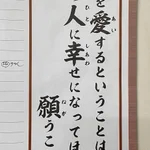 を愛するということは
人に幸せになってほ
願うこ